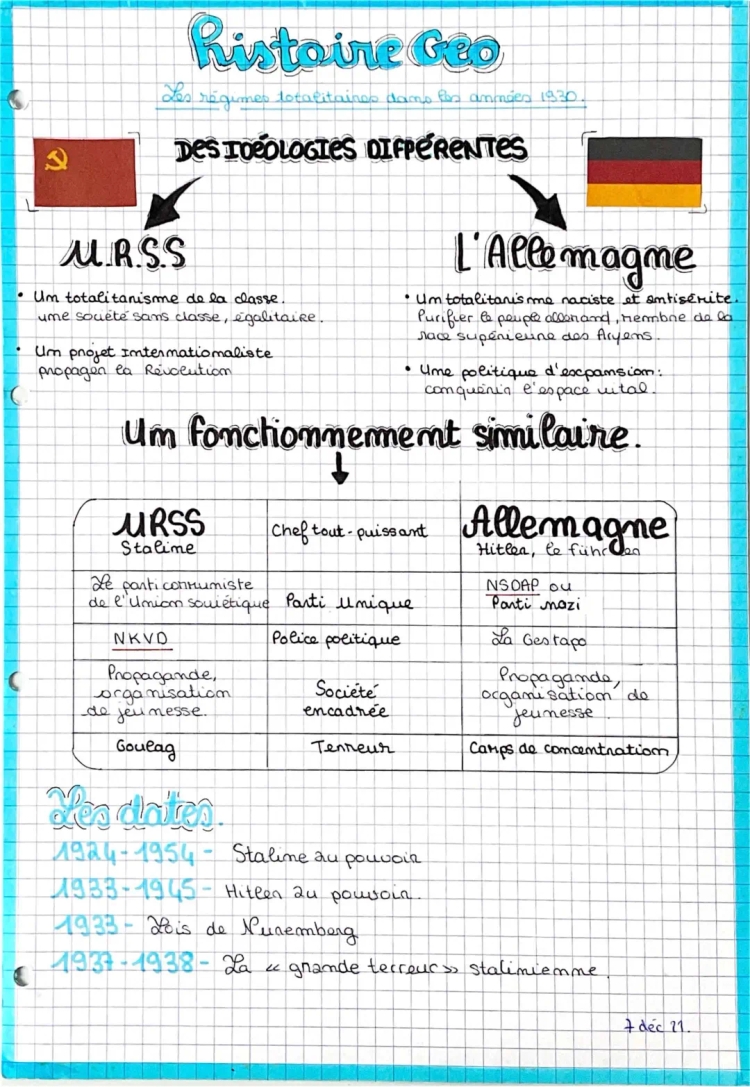 Histoire Geo
Les régimes totalitaires dans les années 1930.
DES IDÉOLOGIES DIFFÉRENTES
U.R.S.S
L'Allemagne
• Un totalitarisme de la classe.
une société sans classe, égalitaire.
• Un projet Internationaliste
propager la Révolution
• Un totalitarisme raciste et antisémite.
Purifier le peuple allemand, membre de la
race supérieure des Aryens.
• Une politique d'expansion :
conquérir l'espace vital.
Un fonctionnement similaire.
URSS
Staline
Chef tout-puissant
Allemagne
Hitler, le führer
Le parti communiste
de l'Union soviétique
Parti unique
NSDAP ou
Parti nazi
NKVD
Police politique
La Gestapo
Propagande,
organisation
de jeunesse.
Société
encadrée
Propagande,
organisation de
jeunesse
Goulag
Terreur
Camps de concentration
Les dates.
1924-1954 - Staline au pouvoir
1933-1945 - Hitler au pouvoir.
1933 - Lois de Nuremberg
1937-1938 - La « grande terreur » stalinienne.
7 déc 21.